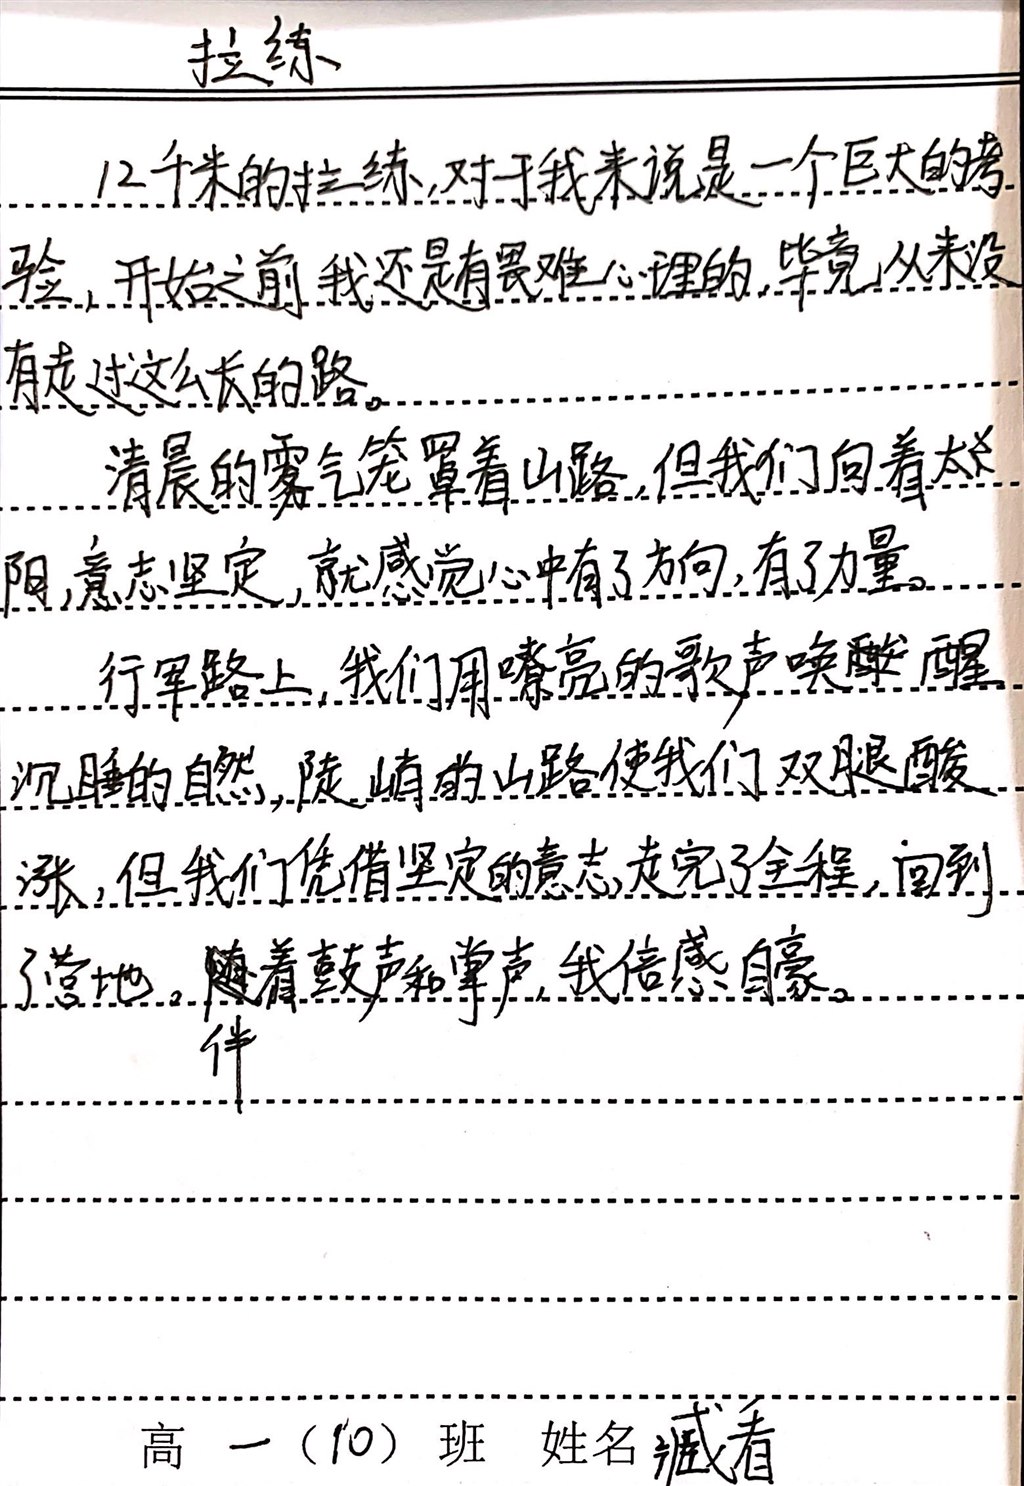 拉练
12千米的拉练,对于我来说是一个巨大的考
验,开始之前我还是有畏难心理的,毕竟从来没
有走过这么长的路。
清晨的雾气笼罩着山路,但我们向着太
阳,意志坚定,就感觉心中有了方向,有了力量。
行军路上,我们用嘹亮的歌声唤醒
沉睡的自然,陡峭的山路使我们双腿酸
涨,但我们凭借坚定的意志走完了全程,回到
了营地。随着鼓声和掌声,我倍感自豪。
伴
高一(10)班 姓名臧看